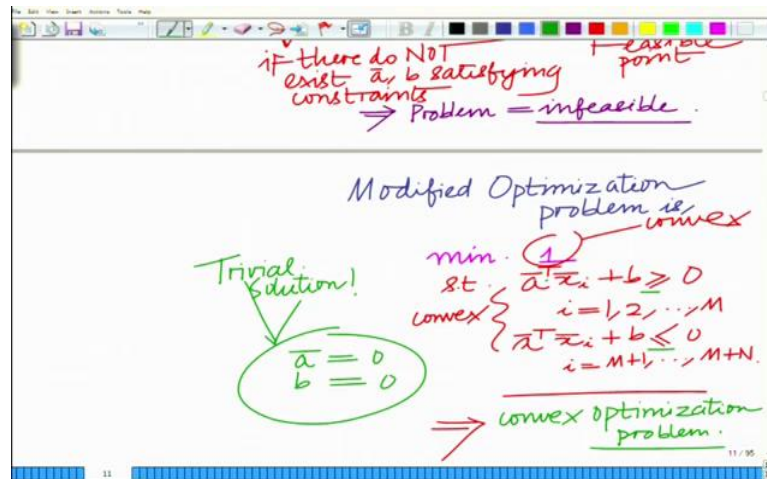 File Edit View Insert Actions Tools Help
if there do NOT
exist ā, b satisfying
constraints
Feasible
point
⇒ Problem = infeasible.
Modified Optimization
problem is,
convex
min. 1
s.t. ā^T x̄_i + b ≥ 0
i = 1, 2, ..., M
convex
ā^T x̄_i + b ≤ 0
i = M+1, ..., M+N.
Trivial
Solution!
ā = 0
b = 0
⇒ convex optimization
problem.
11 / 95
11